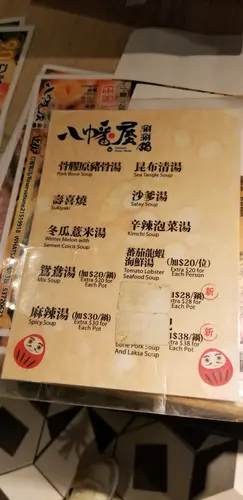 八幡屋 涮涮鍋
骨膠原豬骨湯
Pork Bone Soup
昆布清湯
Sea Tangle Soup
壽喜燒
Sukiyaki
沙爹湯
Satay Soup
冬瓜薏米湯
Winter Melon with
Semen Coicis Soup
辛辣泡菜湯
Kimchi Soup
鴛鴦湯(加$20/鍋)
Mix Soup
Extra $20 for
Each Pot
蕃茄龍蝦
海鮮湯(加$20/位)
Tomato Lobster
Seafood Soup
Extra $20 for
Each Person
麻辣湯(加$30/鍋)
Spicy Soup
Extra $30 for
Each Pot
$28/鍋)
新
Extra $28 for
Each Pot
$38/鍋)
新
Extra $38 for
Each Pot
Bone Pork Soup
And Laksa Soup